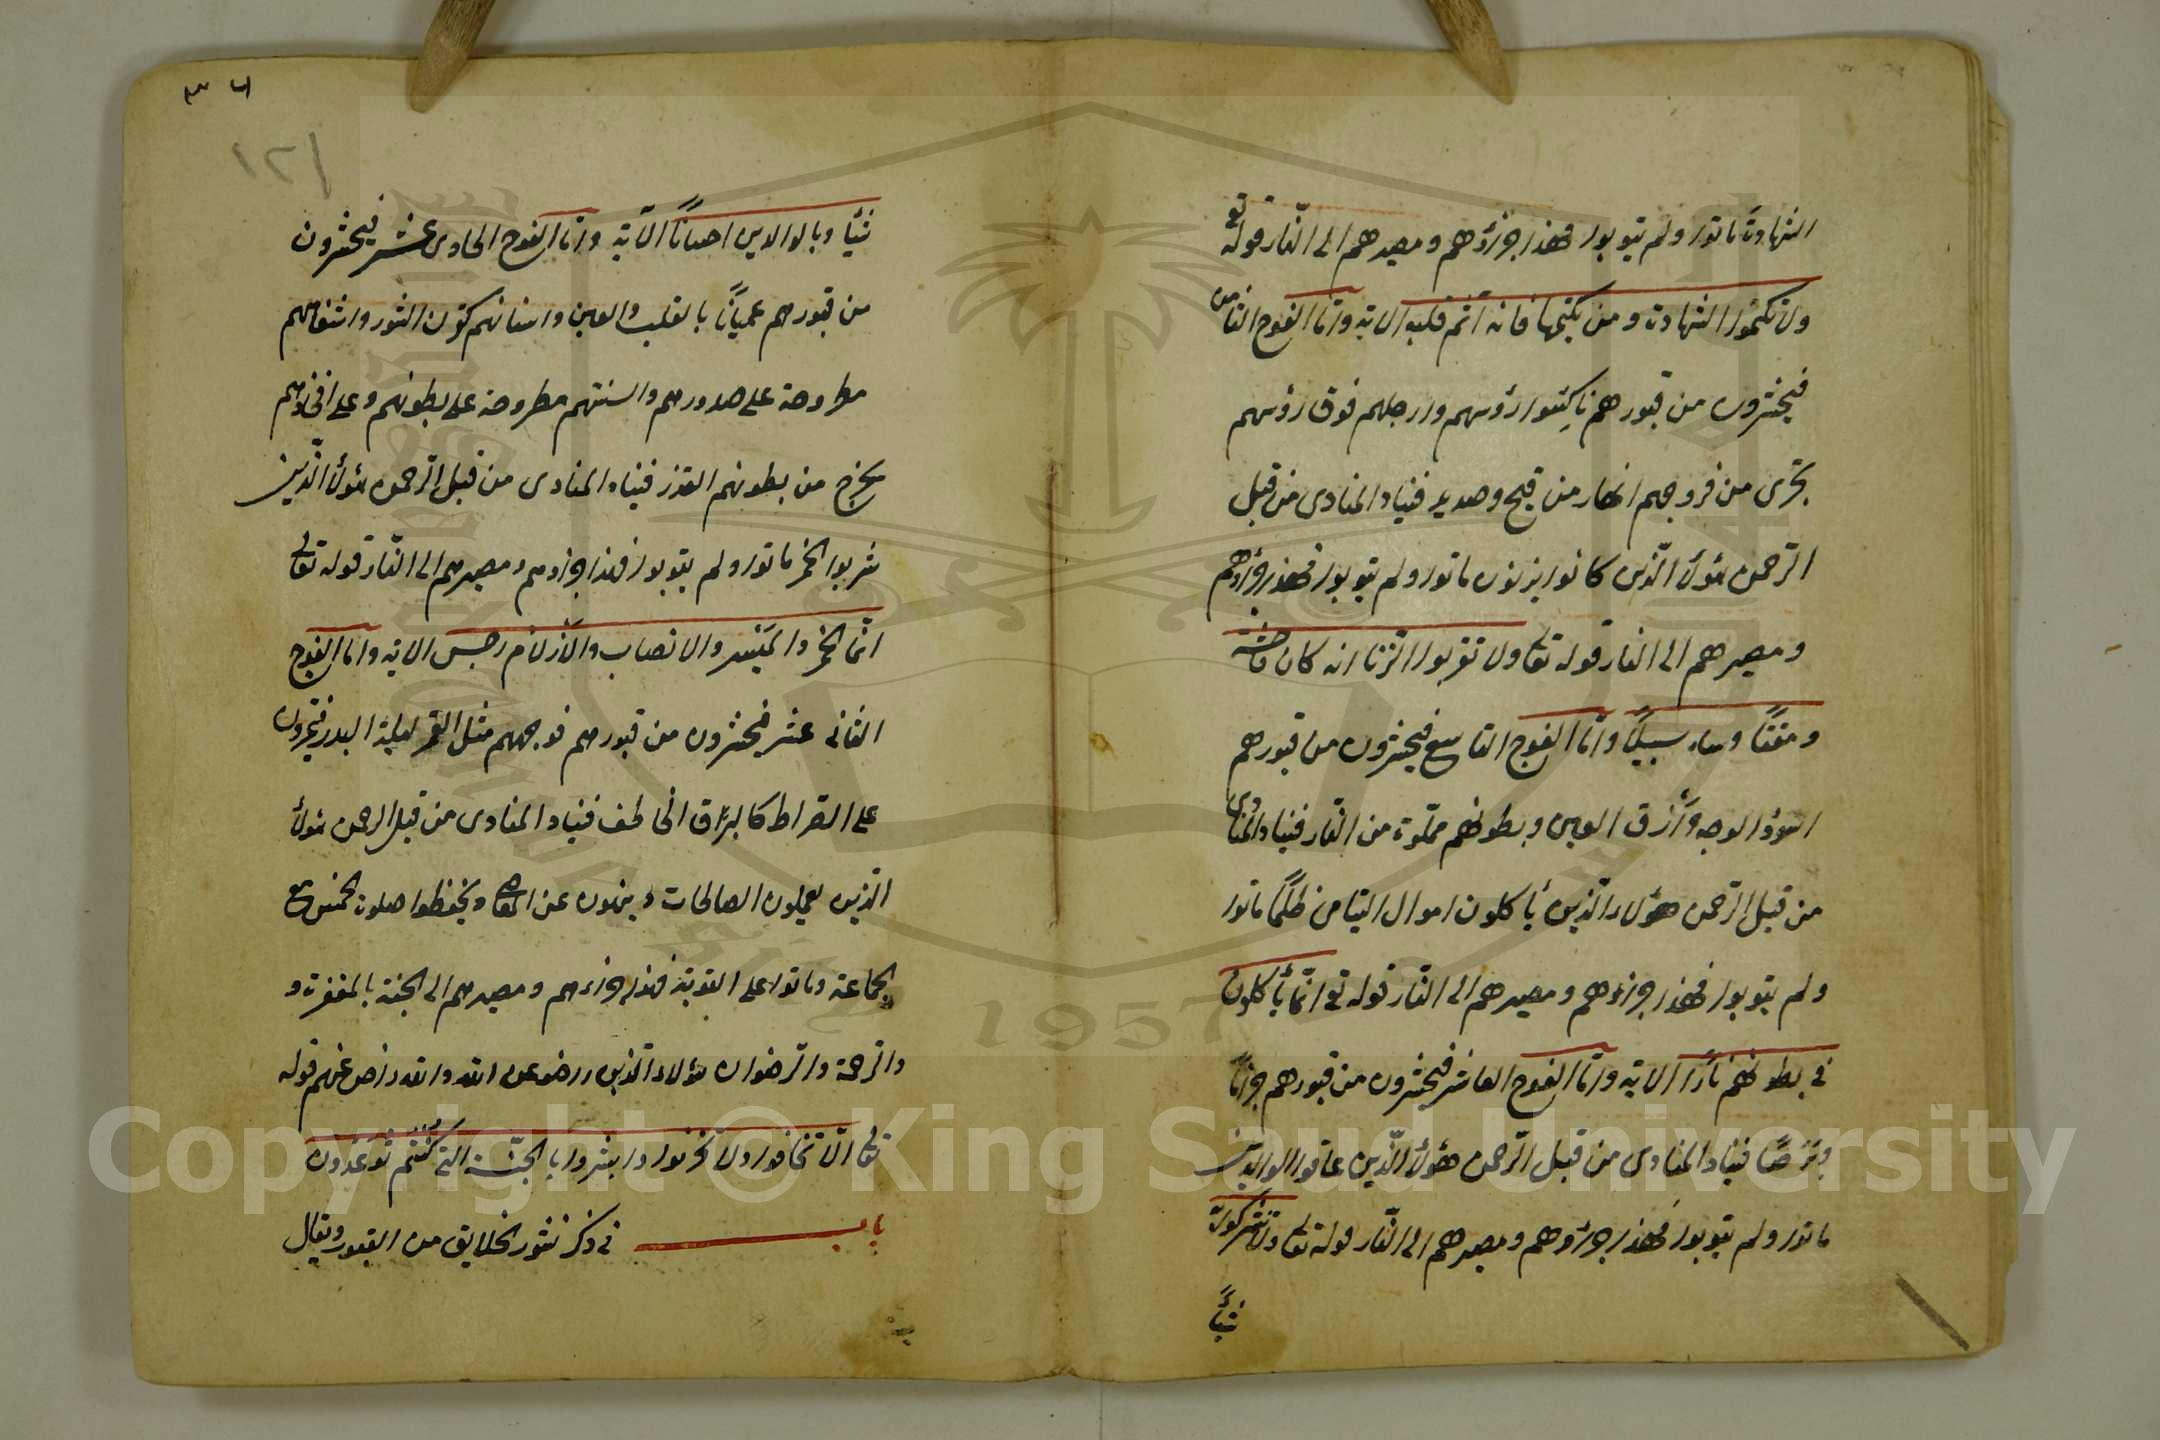 الشهادة ماتوا ولم يتوبوا فهذا جزاؤهم ومصيرهم الى النّار قوله تع
ولا تكتموا الشهادة ومن يكتمها فانه آثم قلبه الاية وامّا الفوج الثامن
فيحشرون من قبورهم ناكسوا رؤسهم وارجلهم فوق رؤسهم
تجرى من فروجهم انهار من قيح وصديد فيناد المنادى من قبل
الرّحمن هؤلاء الّذين كانوا يزنون ماتوا ولم يتوبوا فهذا جزاؤهم
ومصيرهم الى النار قوله تعا ولا تقربوا الزنا انه كان فاحشة
ومقتًا وساء سبيلًا وامّا الفوج التاسع فيحشرون من قبورهم
اسودّ الوجه وأزرق العين وبطونهم مملوّة من النّار فيناد المنادى
من قبل الرّحمن هؤلاء الّذين يأكلون اموال اليتامى ظلمًا ماتوا
ولم يتوبوا فهذا جزاؤهم ومصيرهم الى النّار قوله تع انّما يأكلون
فى بطونهم نارًا الاية وامّا الفوج العاشر فيحشرون من قبورهم جزامًا
وبرصًا فيناد المنادى من قبل الرّحمن هؤلاء الّذين عاقوا الوالدين
ماتوا ولم يتوبوا فهذا جزاؤهم ومصيرهم الى النّار قوله تعا ولا تشركوا به
شيأً
٣٦
١٢١
شيأً وبالوالدين احسانًا الآية وامّا الفوج الحادى عشر فيحشرون
من قبورهم عميانًا بالقلب والعين واسنانهم كقرون الثور واشفاههم
مطروحة على صدورهم والسنتهم مطروحة على بطونهم وعلى افخاذهم
يخرج من بطونهم القذر فيناد المنادى من قبل الرّحمن هؤلاء الّذين
شربوا الخمر ماتوا ولم يتوبوا فهذا جزاؤهم ومصيرهم الى النّار قوله تعا
انّما الخمر والميسر والانصاب والأزلام رجس الاية وامّا الفوج
الثانى عشر فيحشرون من قبورهم فوجههم مثل القمر ليلة البدر فيمرون
على الصّراط كالبرق الخاطف فيناد المنادى من قبل الرحمن هؤلاء
الّذين يعملون الصالحات وينهون عن المعاصى ويحفظوا صلوة الخمس مع
الجماعة وماتوا على التوبة فهذا جزاءهم ومصيرهم الى الجنة بالمغفرة و
والرحمة والرّضوان هؤلاء الّذين رضوعن الله والله راض عنهم قوله
تعا الّا تخافوا ولا تحزنوا وابشروا بالجنّة التى كنتم توعدون
باب فى ذكر نشور الخلايق من القبور ويقال
Copyright © King Saud University
1957